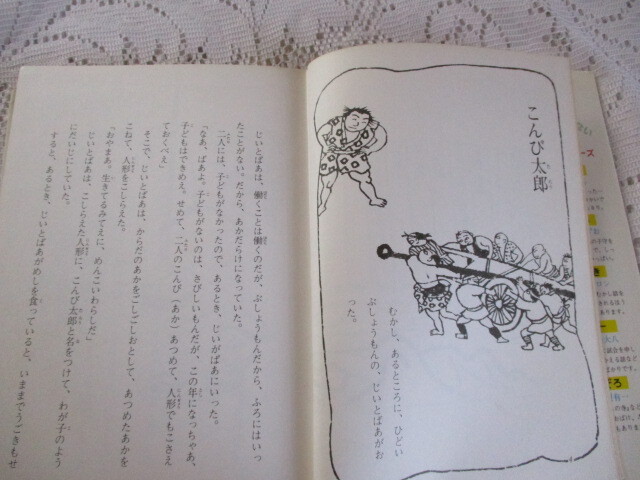 こんび太郎
むかし、あるところに、ひどい
ぶしょうもんの、じいとばあがお
った。
じいとばあは、働くことは働くのだが、ぶしょうもんだから、ふろにはいっ
たことがない。だから、あかだらけになっていた。
二人には、子どもがなかったので、あるとき、じいがばあにいった。
「なあ、ばあよ。子どもがないのは、さびしいもんだが、この年になっちゃあ、
子どもはできめえ。せめて、二人のこんび（あか）あつめて、人形でもこさえ
ておくべえ」
そこで、じいとばあは、からだのあかをごしごしおとして、あつめたあかを
こねて、人形をこしらえた。
「おやまあ。生きてるみてえに、めんこいわらしだ」
じいとばあは、こしらえた人形に、こんび太郎と名をつけて、わが子のよう
にだいじにしていた。
すると、あるとき、じいとばあがめしを食っていると、いままでうごきもせ